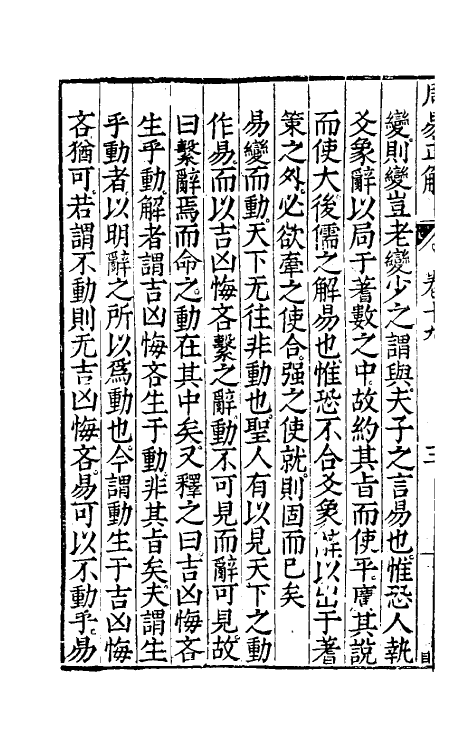 周易正解 卷十九 三
變則變豈老變少之謂與夫子之言易也惟恐人執
爻象辭以局于蓍數之中故約其旨而使平廣其說
而使大後儒之解易也惟恐不合爻象以出于蓍
策之外必欲牽之使合强之使就則固而已矣
易變而動天下无往非動也聖人有以見天下之動
作易而以吉凶悔吝繫之辭動不可見而辭可見故
曰繫辭焉而命之動在其中矣又釋之曰吉凶悔吝
生乎動解者謂吉凶悔吝生于動非其旨矣夫謂生
乎動者以明辭之所以爲動也今謂動生于吉凶悔
吝猶可若謂不動則无吉凶悔吝易可以不動乎易